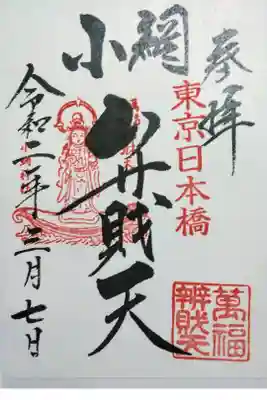 参拝
東京日本橋
小網
弁財天
令和二年三月七日
萬福
辨財天